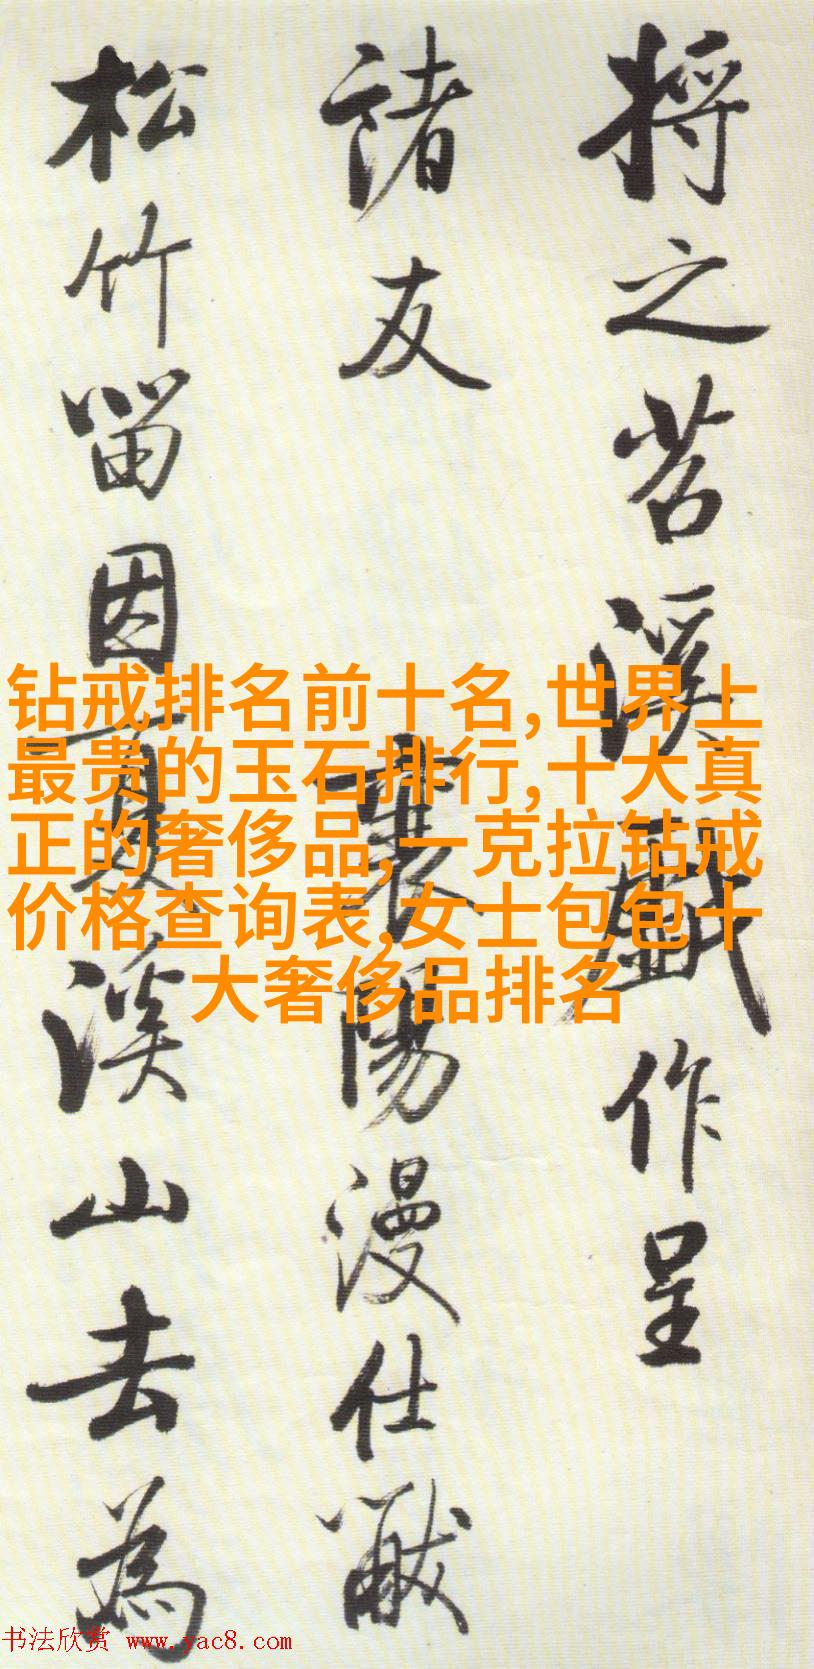 將之苕溪戲作呈
諸友 襄陽漫仕黻
松竹留因夏溪山去為
钻戒排名前十名,世界上
最贵的玉石排行,十大真
正的奢侈品,一克拉钻戒
价格查询表,女士包包十
大奢侈品排名
书法欣赏 www.yac8.com